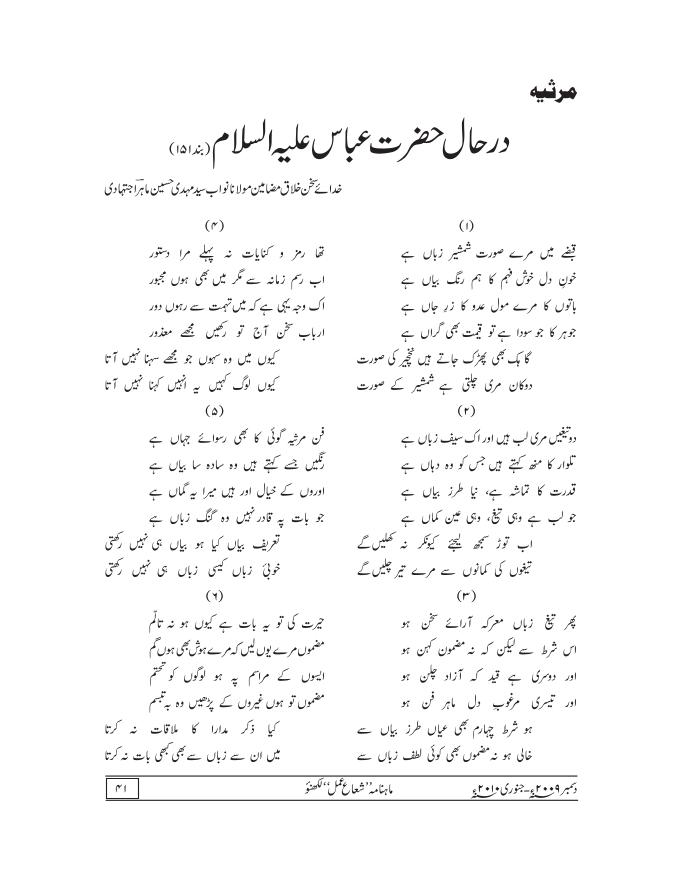 مرثیہ
درحال حضرت عباس علیہ السلام (بند ۱۵۱)
خدائے سخن خلاق مضامین مولانا نواب سید مہدی حسین ماہرؔ اجتہادی
(۱)
قبضے میں مرے صورت شمشیر زباں ہے
خونِ دل خوش فہم کا ہم رنگ بیاں ہے
باتوں کا مرے مول عدو کا زرِ جاں ہے
جوہر کا جو سودا ہے تو قیمت بھی گراں ہے
گاہک بھی پھڑک جاتے ہیں نخچیر کی صورت
دوکان مری چلتی ہے شمشیر کے صورت
(۲)
دو تیغیں مری لب ہیں اور اک سیف زباں ہے
تلوار کا منھ کہتے ہیں جس کو وہ دہاں ہے
قدرت کا تماشہ ہے، نیا طرز بیاں ہے
جو لب ہے وہی تیغ، وہی عین کماں ہے
اب توڑ سمجھ لیجئے کیونکر نہ کھلیں گے
تیغوں کی کمانوں سے مرے تیر چلیں گے
(۳)
پھر تیغ زباں معرکہ آرائے سخن ہو
اس شرط سے لیکن کہ نہ مضمون کہن ہو
اور دوسری ہے قید کہ آزاد چلن ہو
اور تیسری مرغوبِ دل ماہر فن ہو
ہو شرط چہارم بھی عیاں طرز بیاں سے
خالی ہو نہ مضموں بھی کوئی لطف زباں سے
(۴)
تھا رمز و کنایات نہ پہلے مرا دستور
اب رسم زمانہ سے مگر میں بھی ہوں مجبور
اک وجہ یہی ہے کہ میں تہمت سے رہوں دور
ارباب سخن آج تو رکھیں مجھے معذور
کیوں میں وہ سہوں جو مجھے سہنا نہیں آتا
کیوں لوگ کہیں یہ انہیں کہنا نہیں آتا
(۵)
فن مرثیہ گوئی کا بھی رسوائے جہاں ہے
رنگیں جسے کہتے ہیں وہ سادہ سا بیاں ہے
اوروں کے خیال اور ہیں میرا یہ گماں ہے
جو بات پہ قادر نہیں وہ گنگ زباں ہے
تعریف بیاں کیا ہو بیاں ہی نہیں رکھتی
خوبیٔ زباں کیسی زباں ہی نہیں رکھتی
(۶)
حیرت کی تو یہ بات ہے کیوں ہو نہ تالّم
مضموں مرے یوں لیں کہ مرے ہوش بھی ہوں گم
ایسوں کے مراسم پہ ہو لوگوں کو تحتّم
مضموں تو ہوں غیروں کے پڑھیں وہ بہ تبسم
کیا ذکر مدارا کا ملاقات نہ کرتا
میں ان سے زباں سے بھی کبھی بات نہ کرتا
دسمبر ۲۰۰۹ء – جنوری ۲۰۱۰ء
ماہنامہ ”شعاع عمل“ لکھنؤ
۴۱